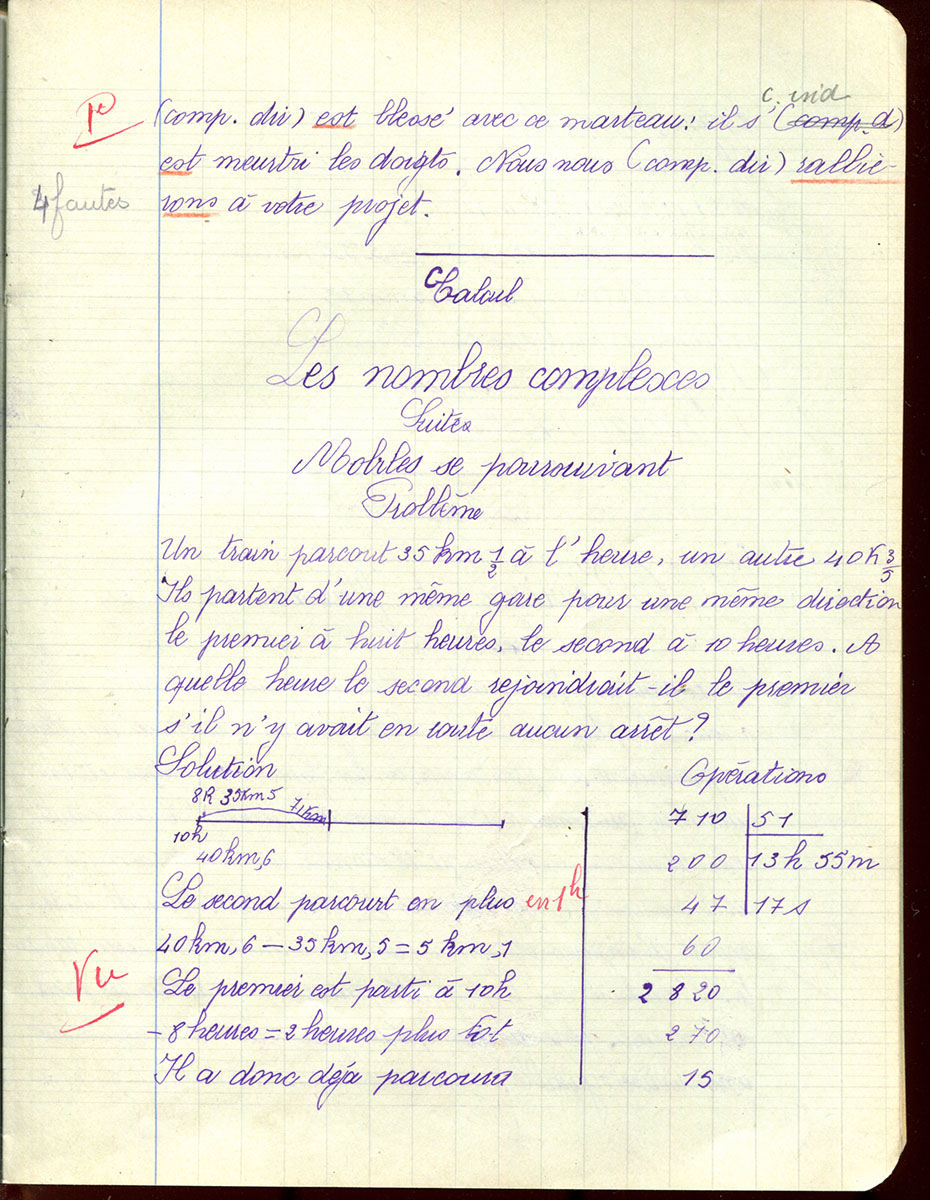 c. ind
(comp. dir) est blessé avec ce marteau: il s' (comp. d)
est meurtri les doigts. Nous nous (comp. dir) rallie-
4 fautes
rons à votre projet.
Calcul
Les nombres complexes
Suites
Mobiles se poursuivant
Problème
Un train parcout 35 km 1/2 à l'heure, un autre 40 K 3/5
Ils partent d'une même gare pour une même direction
le premier à huit heures, le second à 10 heures. A
quelle heure le second rejoindrait-il le premier
s'il n'y avait en route aucun arrêt?
Solution
8h 35km5 71km
10h
40km,6
Le second parcourt en plus en 1h
40km,6 — 35km,5 = 5 km,1
Vu
Le premier est parti à 10h
- 8 heures = 2 heures plus tôt
Il a donc déjà parcouru
Opérations
710 51
200 13h 55m
47 17s
60
2 820
270
15